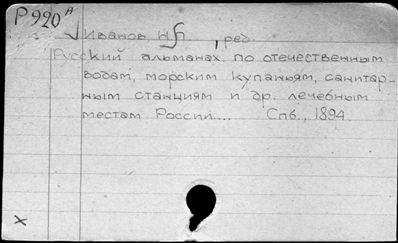 Р 920 А
Иванов НЛ, ред.
Русский альманах по отечественным
водам, морским купаньям, санитар-
ным станциям и др. лечебным
местам России.... Спб., 1894.
х